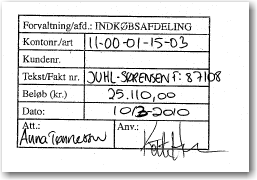 Forvaltning/afd.: INDKØBSAFDELING
Kontonr./art 11-00-01-15-03
Kundenr.
Tekst/Fakt nr. JUHL-SØRENSEN F: 87108
Beløb (kr.) 25.110,00
Dato: 10/3-2010
Att.: Anv.:
Anna Tønnesen